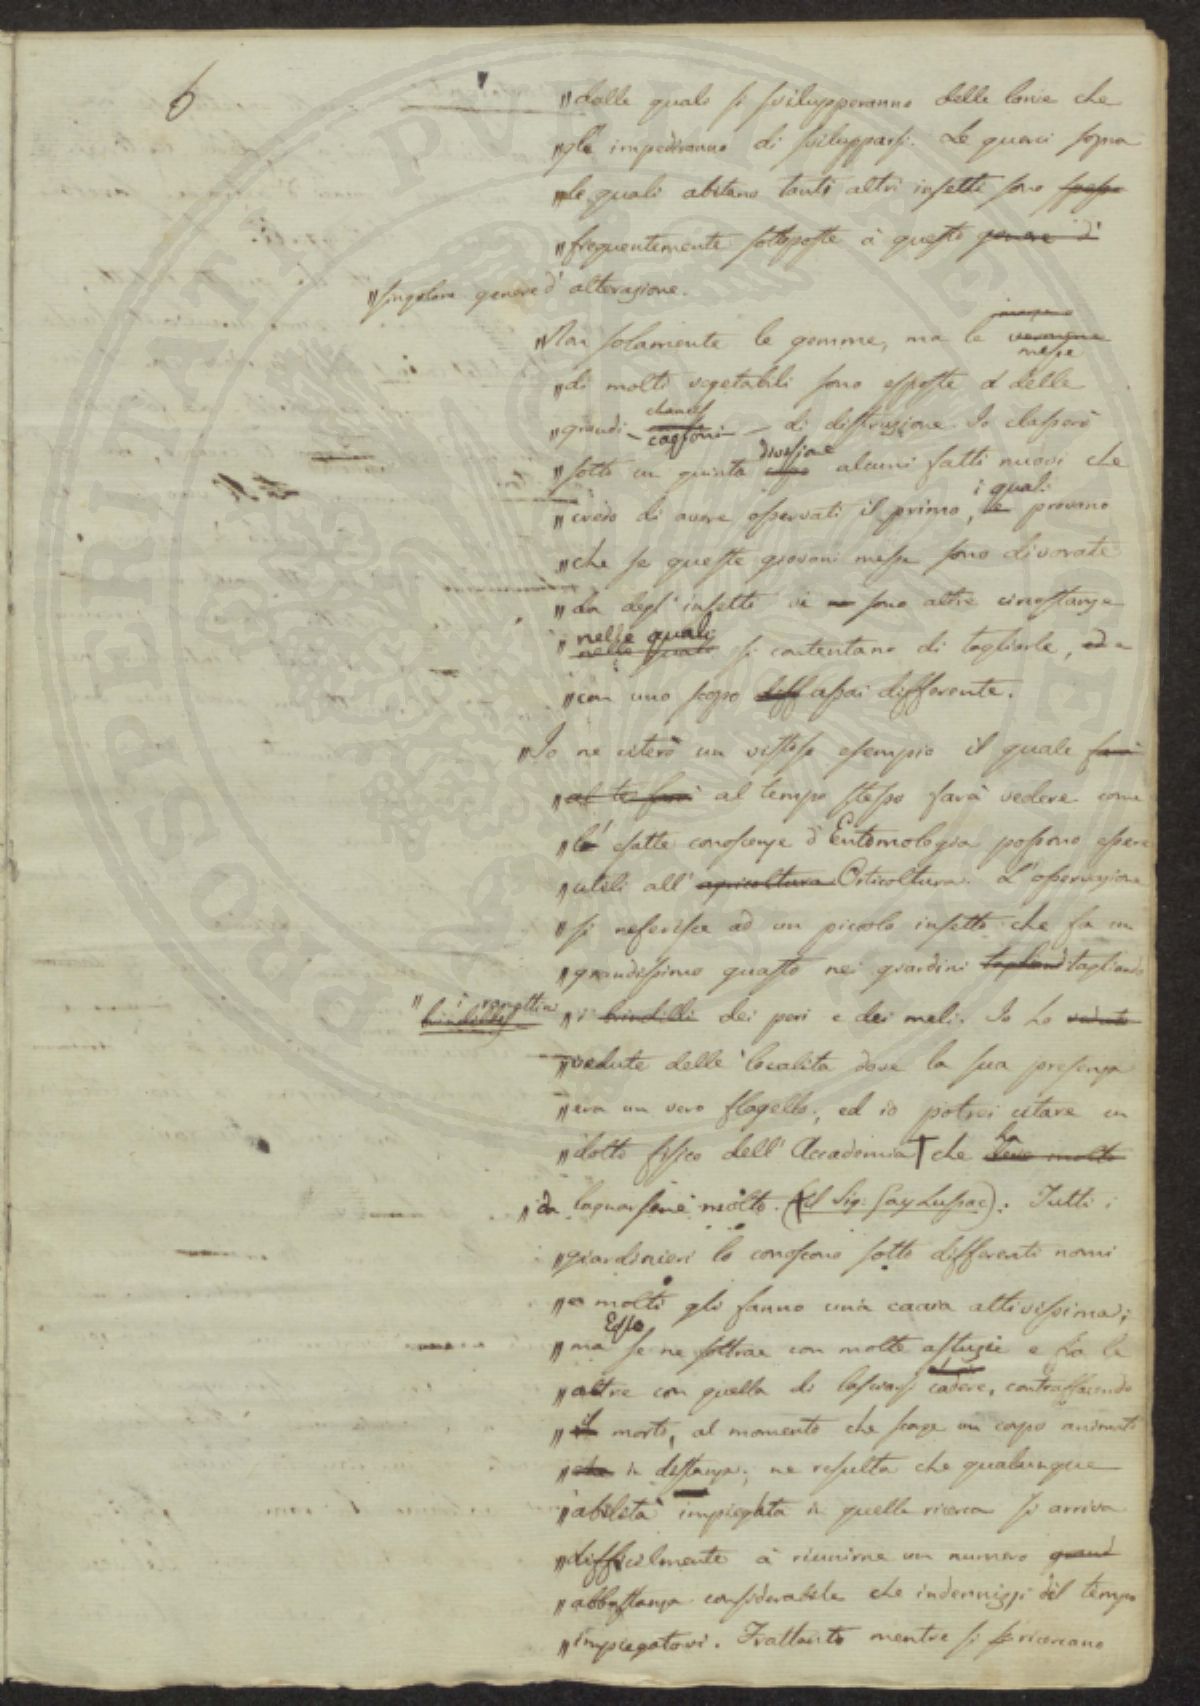 6
"dalle quale si svilupperanno delle larve che
"gl' impediranno di svilupparsi. Le querci sopra
"le quali abitano tanti altri insetti sono spesso
"frequentemente sottoposte à questo genere di
"singolare genere d' alterazione.
"Non solamente le gemme, ma le messe
"di molti vegetabili sono esposte a delle
"grandi cagioni di distruzione. Io classerò
"sotto un quinta divisione alcuni fatti nuovi che
"credo di avere osservati il primo, i quali provano
"che se queste giovani messe sono divorate
"da degl' insetti vi sono altre circostanze
"nelle quali si contentano di tagliarle, ed
"con uno scopo diff assai differente.
"Io ne citerò un esempio il quale farà
"al te farà al tempo stesso farà vedere come
"le esatte conoscenze d'Entomologia possono essere
"utili all' agricoltura Orticoltura. L'osservazione
"si referisce ad un piccolo insetto che fa un
"grandissimo guasto nei giardini tagliand tagliando
" i ramettini
brindilles
"i brindilli dei peri e dei meli. Io ho veduto
"vedute delle località dove la sua presenza
"era un vero flagello, ed io potrei citare un
"dotto fisico dell' Accademia che ha molto
"da lagnarsene molto. (il Sig. Gay Lussac). Tutti i
"giardinieri lo conoscono sotto differenti nomi
"e molti gli fanno una caccia attivissima;
"ma Esso se ne sottrae con molte astuzie e fra le
"altre con quella di lasciarsi cadere, contraffacendo
"il morto, al momento che scorge un corpo animato
"che in distanza; ne resulta che qualunque
"abilità impiegata in quella ricerca si arriva
"difficilmente à riunirne un numero grand
"abbastanza considerabile che indennizzi del tempo
"impiegatovi. Frattanto mentre si ricercano